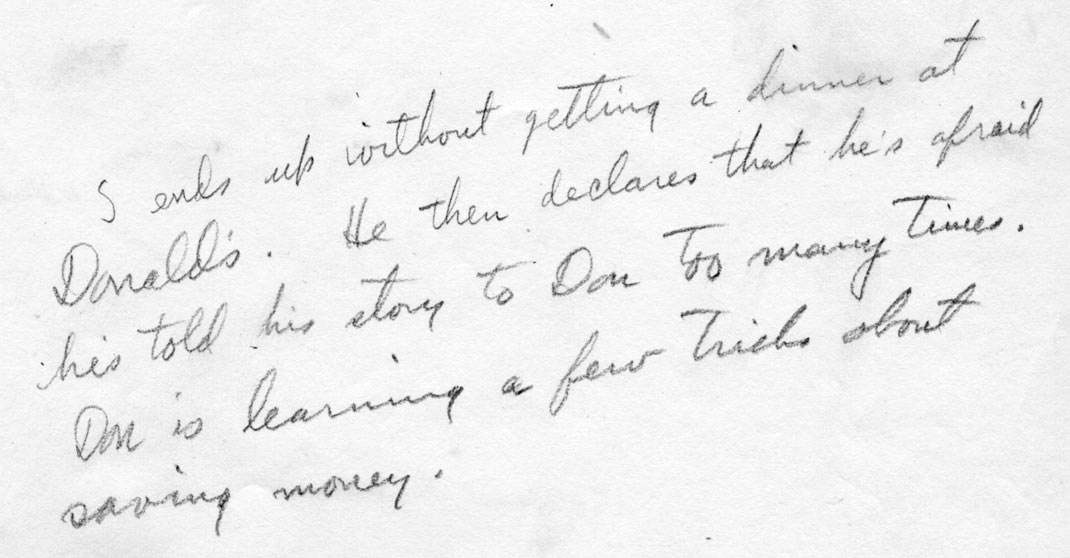 S ends up without getting a dinner at
Donald's. He then declares that he's afraid
he's told his story to Don too many times.
Don is learning a few tricks about
saving money.